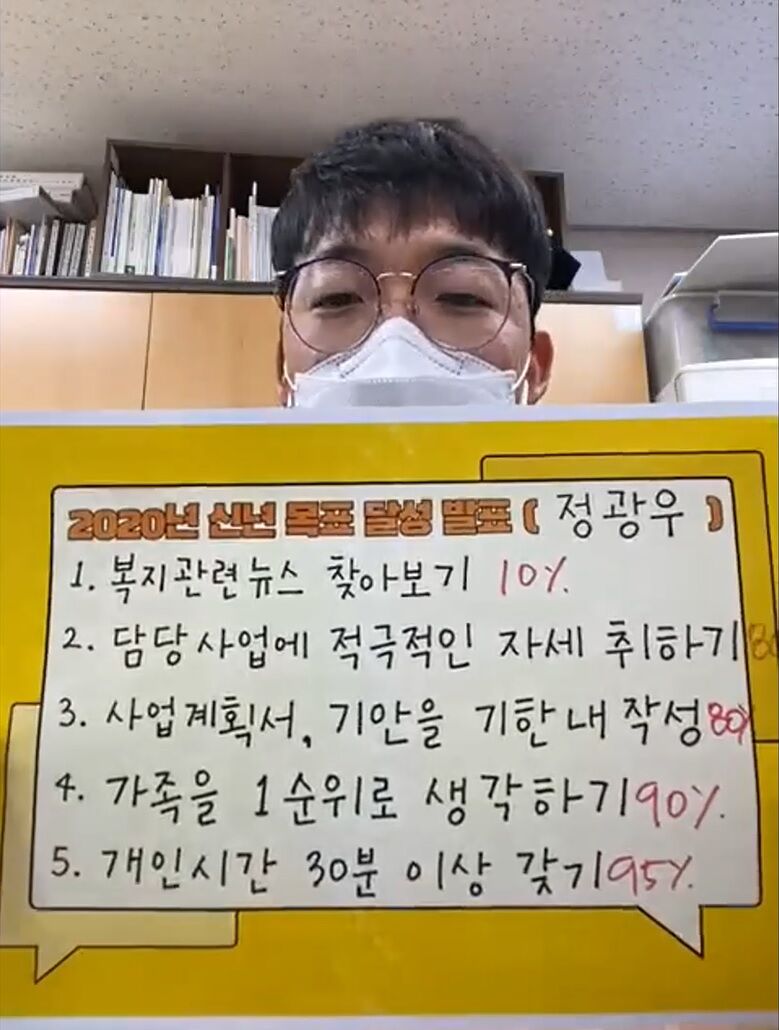 2020년 신년 목표 달성 발표 ( 정광우 )
1. 복지관련뉴스 찾아보기 10%.
2. 담당사업에 적극적인 자세 취하기 80
3. 사업계획서, 기안을 기한내 작성 80%
4. 가족을 1순위로 생각하기 90%.
5. 개인시간 30분 이상 갖기 95%.